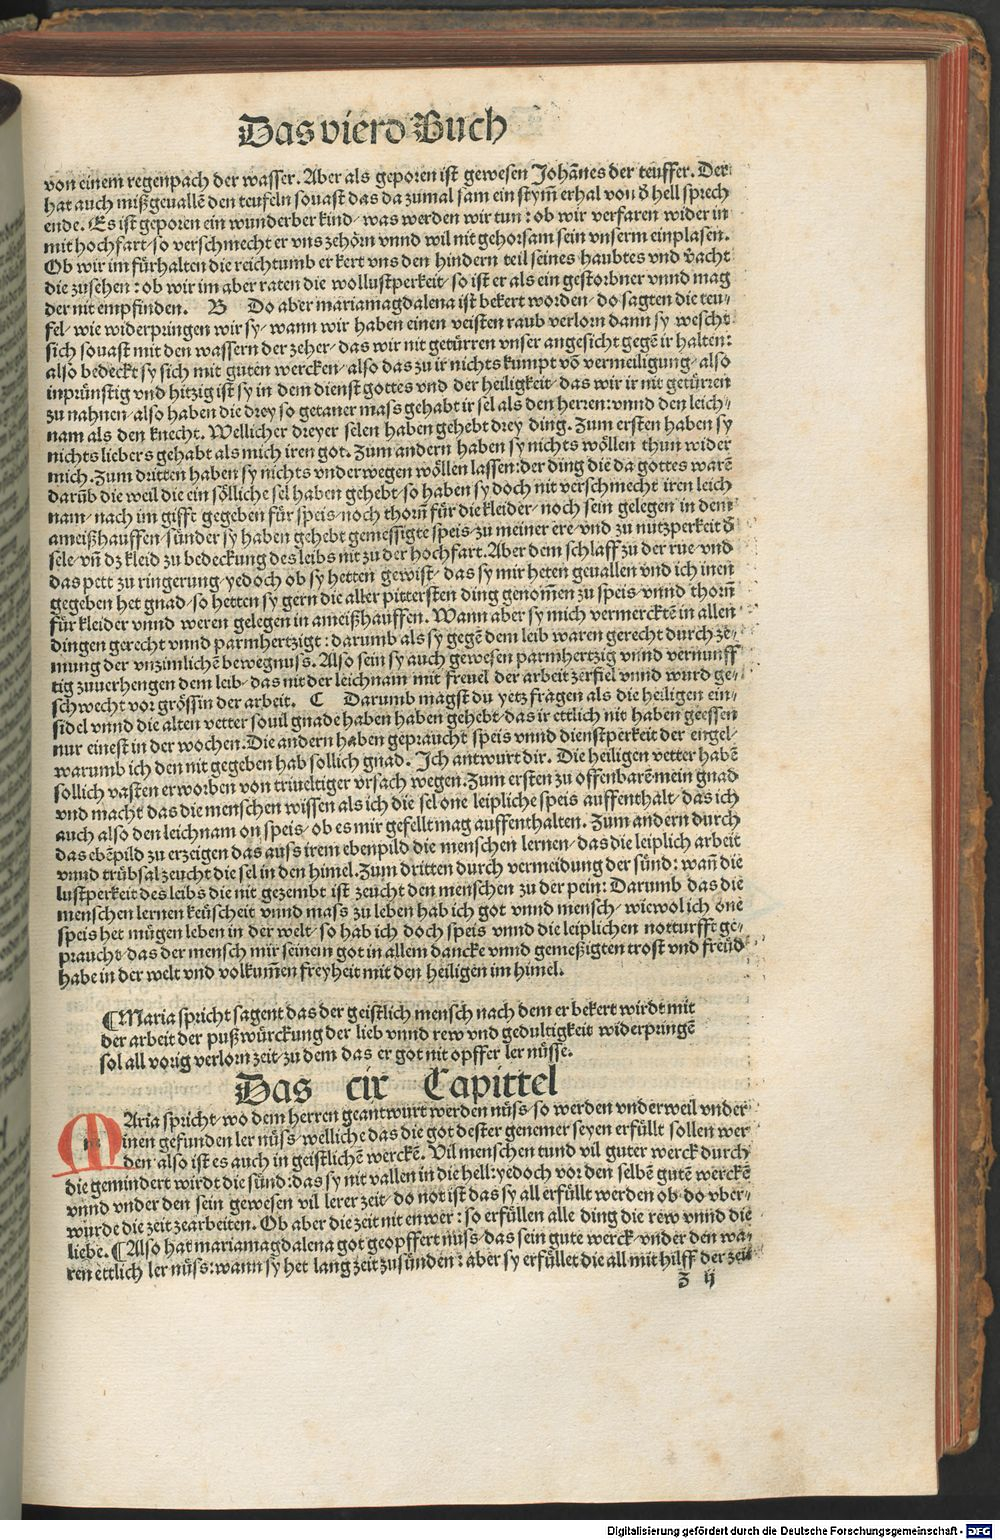 Das vierd Buch
von einem regenpach der wasser. Aber als geporen ist gewesen Johãnes der teuffer. Der
hat auch mißgeuallẽ den teufeln souast das da zumal sam ein stym̃ erhal von d̕ hell sprech
ende. Es ist geporen ein wunderber kind/ was werden wir tun: ob wir verfaren wider in
mit hochfart/ so verschmecht er vns zehörn vnnd wil nit gehorsam sein vnserm einplasen.
Ob wir im fürhalten die reichtumb er kert vns den hindern teil seines haubtes vnd v̕acht
die zusehen: ob wir im aber raten die wollustperkeit/ so ist er als ein gestorbner vnnd mag
der nit empfinden. B Do aber mariamagdalena ist bekert worden/ do sagten die teu⸗
fel/ wie widerpringen wir sy/ wann wir haben einen veisten raub verlorn dann sy wescht
sich souast mit den wassern der zeher/ das wir nit getürren vnser angesicht gegẽ ir halten:
also bedeckt sy sich mit guten wercken/ also das zu ir nichts kumpt võ vermeiligung/ also
inprünstig vnd hitzig ist sy in dem dienst gottes vnd der heiligkeit/ das wir ir nit getürren
zu nahnen/ also haben die drey so getaner mass gehabt ir sel als den herren: vnnd den leich⸗
nam als den knecht. Wellicher dreyer selen haben gehebt drey ding. Zum ersten haben sy
nichts liebers gehabt als mich iren got. Zum andern haben sy nichts wöllen thun wider
mich. Zum dritten haben sy nichts vnderwegen wöllen lassen: der ding die da gottes warẽ
darũb die weil die ein sölliche sel haben gehebt/ so haben sy doch nit verschmecht iren leich
nam/ nach im gifft gegeben für speis/ noch thorñ für die kleider/ noch sein gelegen in dem
ameißhauffen/ sünder sy haben gehebt gemessigte speis/ zu meiner ere/ vnd zu nutzperkeit d̕
sele/ vñ dz kleid zu bedeckung des leibs nit zu der hochfart. Aber dem schlaff zu der rue/ vnd
das pett zu ringerung/ yedoch ob sy hetten gewist/ das sy mir heten geuallen vnd ich inen
gegeben het gnad/ so hetten sy gern die aller pittersten ding genom̃en zu speis/ vnnd thorñ
für kleider vnnd weren gelegen in ameißhauffen. Wann aber sy mich vermercktẽ in allen
dingen gerecht vnnd parmhertzigt: darumb als sy gegẽ dem leib waren gerecht durch ze⸗
mung der vnzimlichẽ bewegnuss. Also sein sy auch gewesen parmhertzig vnnd vernunff
tig zuuerhengen dem leib/ das nit der leichnam mit freuel der arbeit zerfiel vnnd wurd ge⸗
schwecht vor grössin der arbeit. C Darumb magst du yetz fragen als die heiligen ein⸗
sidel vnnd die alten vetter souil gnade haben haben gehebt/ das ir ettlich nit haben geessen
nur einest in der wochen. Die andern haben gepraucht speis vnnd dienstperkeit der engel/
warumb ich den nit gegeben hab sollich gnad. Ich antwurt dir. Die heiligen vetter habẽ
sollich vasten erworben von triueltiger vrsach wegen. Zum ersten zu offenbarẽ mein gnad
vnd macht das die menschen wissen als ich die sel one leipliche speis auffenthalt/ das ich
auch also den leichnam on speis/ ob es mir gefellt mag auffenthalten. Zum andern durch
das ebẽpild zu erzeigen das auss irem ebenpild die menschen lernen/ das die leiplich arbeit
vnnd trübsal zeucht die sel in den himel. Zum dritten durch vermeidung der sünd: wañ die
lustperkeit des leibs die nit gezembt ist zeucht den menschen zu der pein: Darumb das die
menschen lernen keüscheit vnnd mass zu leben hab ich got vnnd mensch/ wiewol ich one
speis het mügen leben in der welt/ so hab ich doch speis vnnd die leiplichen notturfft ge⸗
praucht/ das der mensch mir seinem got in allem dancke vnnd gemeßigten trost vnd freüd
habe in der welt vnd volkum̃en freyheit mit den heiligen im himel.
¶ Maria spricht sagent das der geistlich mensch nach dem er bekert wirdt mit
der arbeit der puß würckung der lieb vnnd rew vnd gedultigkeit widerpringẽ
sol all vorig verlorn zeit/ zu dem das er got nit opffer ler nüsse.
Das cix Capittel
MAria spricht/ wo dem herren geantwurt werden nüss/ so werden vnderweil vnder
inen gefunden ler nüss/ welliche das die got dester genemer seyen erfüllt sollen wer
den/ also ist es auch in geistlichẽ werckẽ. Vil menschen tund vil guter werck durch
die gemindert wirdt die sünd: das sy nit vallen in die hell: yedoch vor den selbẽ gutẽ werckẽ
vnnd vnder den sein gewesen vil lerer zeit/ do not ist das sy all erfüllt werden ob do vber⸗
würde die zeit zearbeiten. Ob aber die zeit nit enwer: so erfüllen alle ding die rew vnnd die
liebe. ¶ Also hat mariamagdalena got geopffert nüss/ das sein gute werck/ vnder den wa⸗
ren ettlich ler nüss: wann sy het lang zeit zusünden: aber sy erfüllet die all mit hilff der zeit
z ij
Digitalisierung gefördert durch die Deutsche Forschungsgemeinschaft - DFG